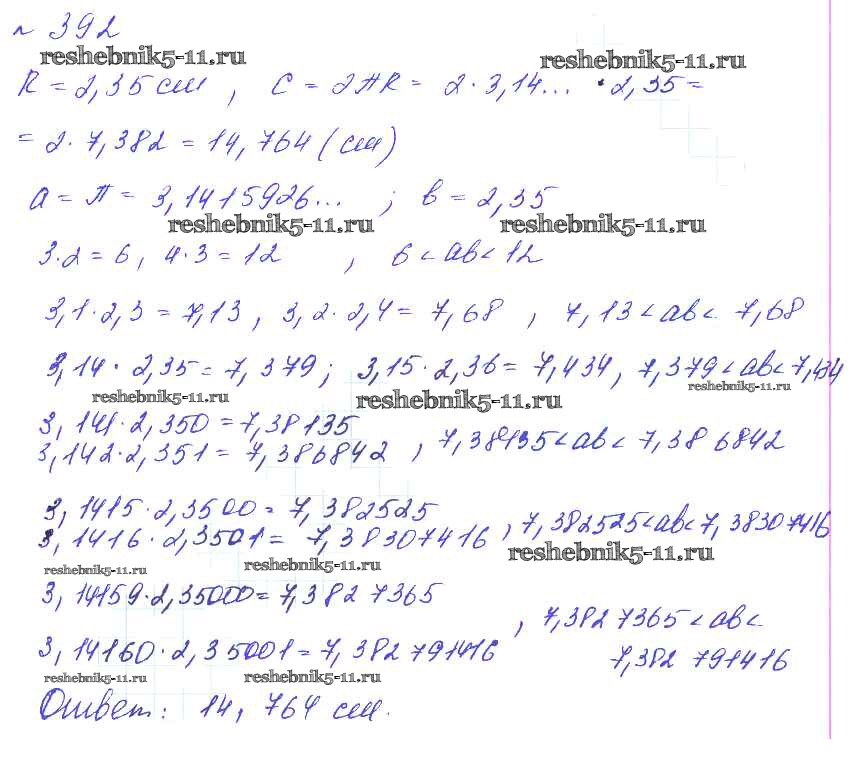 № 392
reshebnik5-11.ru reshebnik5-11.ru
R = 2,35 см , C = 2πR = 2 · 3,14... · 2,35 =
= 2 · 7,382 = 14,764 (см)
a = π = 3,1415926... ; в = 2,35
reshebnik5-11.ru reshebnik5-11.ru
3·2 = 6 , 4·3 = 12 , 6 < ab < 12
3,1 · 2,3 = 7,13 , 3,2 · 2,4 = 7,68 , 7,13 < ab < 7,68
3,14 · 2,35 = 7,379 ; 3,15 · 2,36 = 7,434 , 7,379 < ab < 7,434
reshebnik5-11.ru reshebnik5-11.ru reshebnik5-11.ru
3,141 · 2,350 = 7,38135
3,142 · 2,351 = 7,386842 , 7,38135 < ab < 7,386842
3,1415 · 2,3500 = 7,382525
3,1416 · 2,3501 = 7,38307416 , 7,382525 < ab < 7,38307416
reshebnik5-11.ru reshebnik5-11.ru reshebnik5-11.ru
3,14159 · 2,35000 = 7,3827365
, 7,3827365 < ab <
3,14160 · 2,35001 = 7,382791416 7,382791416
reshebnik5-11.ru reshebnik5-11.ru
Ответ: 14,764 см.